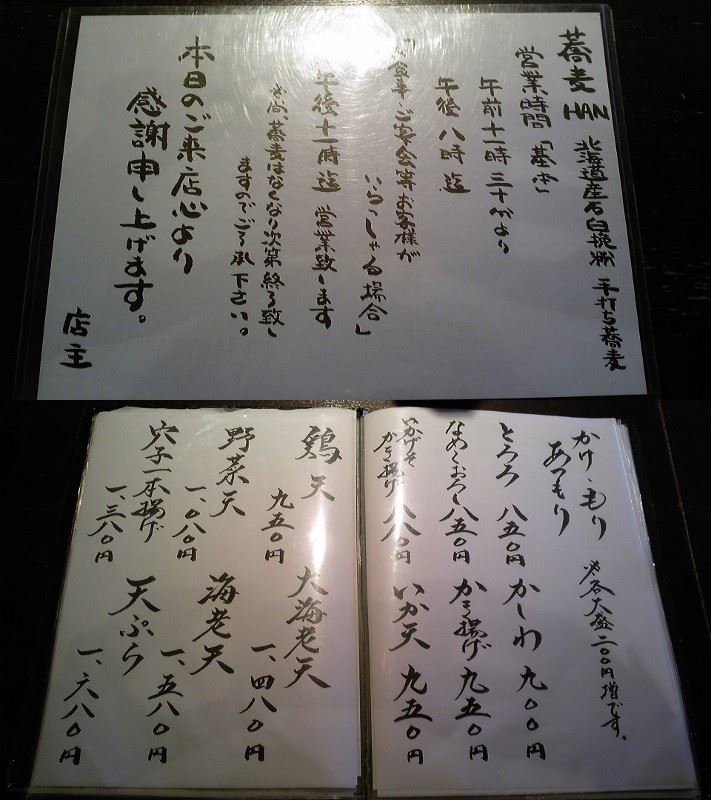 蕎麦 HAN 北海道産石臼挽粉 手打ち蕎麦
営業時間「基本」
午前十一時三十分より
午後八時迄
食事、ご宴会等お客様が
いらっしゃる場合」
午後十一時迄 営業致します
尚、蕎麦はなくなり次第終了致し
ますのでご了承下さい。
本日のご来店心より
感謝申し上げます。
店主
かけ・もり
あつもり
各大盛二〇〇円増です。
とろろ 八五〇円
かしわ 九〇〇円
なめこおろし 八五〇円
かき揚げ 九五〇円
いかげそ
かき揚げ 八八〇円
いか天 九五〇円
鶏天 九五〇円
大海老天 一、四八〇円
野菜天 一、〇八〇円
海老天 一、五八〇円
穴子一本揚げ 一、三八〇円
天ぷら 一、六八〇円